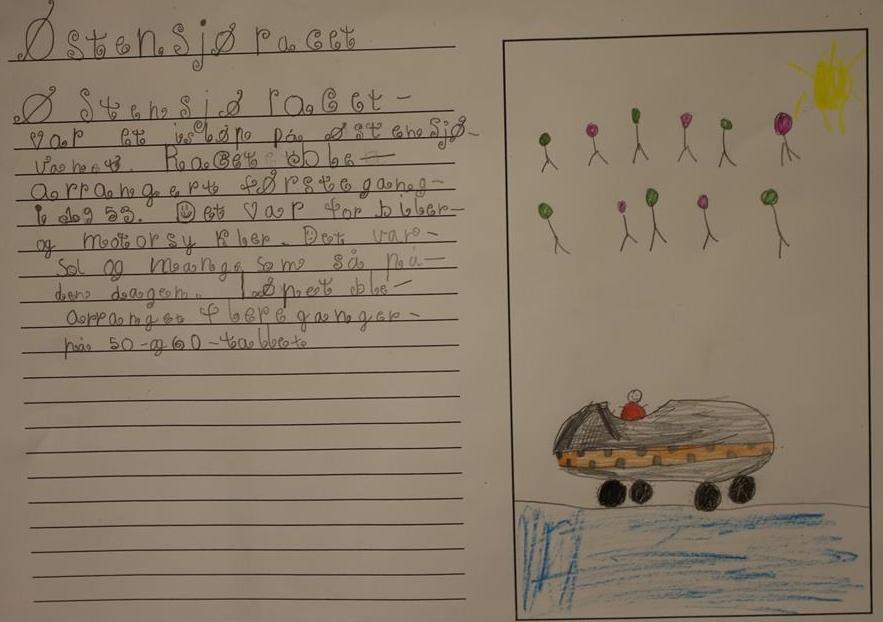 Østensjøracet
Østensjøracet-
var et isløp på Østensjø-
vanet. Racet ble-
arrangert førstegang-
i 53. Det var for biler-
og motorsykler. Det var-
sol og mange som så på-
den dagen. Løpet ble-
arranget flere ganger-
på 50-og60-tallet.